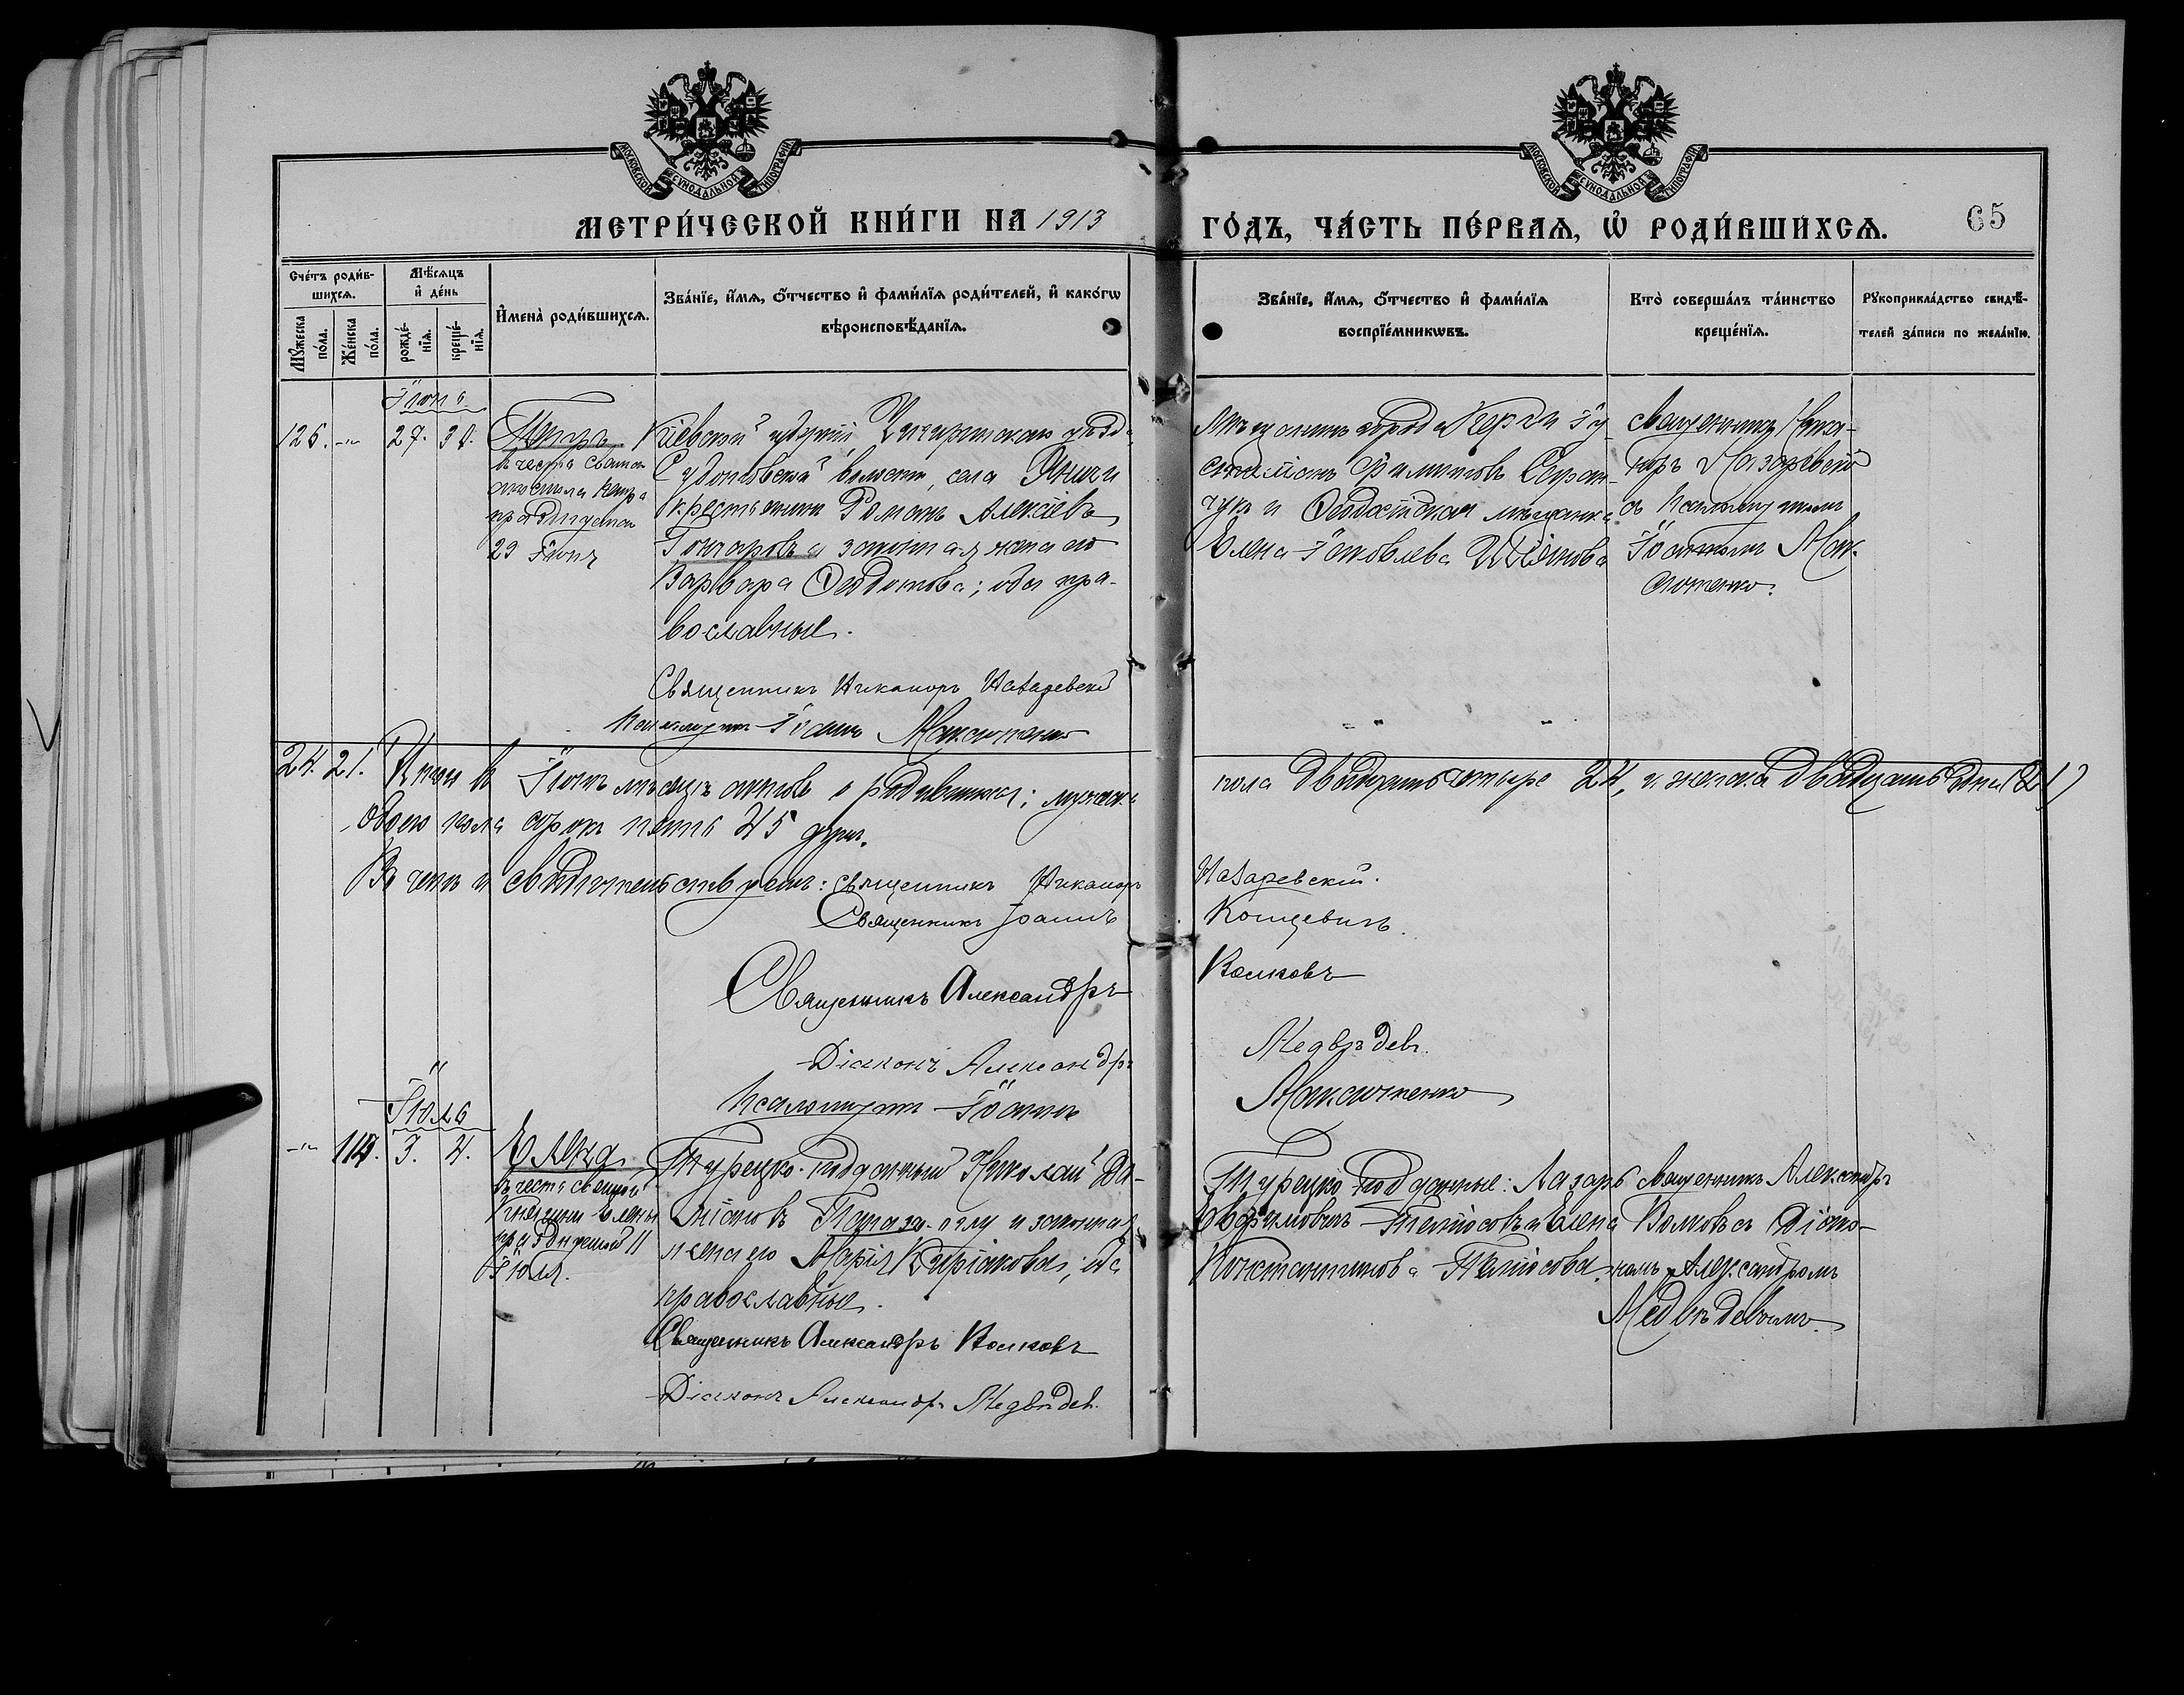 МОСКОВСКОЙ СѴНОДАЛЬНОЙ ТИПОГРАФІИ
МОСКОВСКОЙ СѴНОДАЛЬНОЙ ТИПОГРАФІИ
МЕТРИ́ЧЕСКОЙ КНИ́ГИ НА 1913
ГО́ДЪ, ЧА́СТЬ ПЕ́РВАЯ, Ѡ҆ РОДИ́ВШИХСѦ.
65
Сче́тъ роди́в-
шихсѧ.
Мѣ́сѧцъ
и҆ де́нь
Мꙋ́жеска
по́ла.
Же́нска
по́ла.
рожде́-
нїѧ.
креще́-
нїѧ.
И҆мена̀ роди́вшихсѧ.
Зва́нїе, и҆́мѧ, ѻ҆́тчество и҆ фами́лїѧ роди́телей, и҆ како́гѡ
вѣроисповѣ́данїѧ.
Зва́нїе, и҆́мѧ, ѻ҆́тчество и҆ фами́лїѧ
воспрїе́мникѡвъ.
Кто̀ соверша́лъ та́инство
креще́нїѧ.
Рꙋкоприкла́дство свидѣ́-
телей за́писи по жела́нїю.
126. -"- 27. 30.
Петръ
въ честь святаго
апостола Петра
29 Іюня
Кіевской губерніи Чигиринскаго уѣзда
волости, села
крестьянинъ Романъ Алексіевъ
Гончаровъ и законная жена его
Варвара Ѳеодотова; оба пра-
вославные.
Священникъ Никаноръ Назаревскій
Псаломщикъ Іоаннъ Максютенко
Мѣщанинъ города Керчи
Филипповъ
и Ѳеодосійская мѣщанка
Елена Іаковлева
Священникъ Ника-
норъ Назаревскій
съ Псаломщикомъ
Іоанномъ Мак-
сютенко.
24. 21. Итого въ Іюнѣ мѣсяцѣ актовъ о родившихся: мужска
пола двадцать четыре 24, и женска двадцать одна (21)
обоего пола сорокъ пять 45 душ.
Въ чемъ и свидѣтельствуемъ: Священникъ Никаноръ
Назаревскій.
Священникъ Іоаннъ
Концевичъ.
Священникъ Александръ
Волковъ
Діаконъ Александръ
Медвѣдевъ.
Псаломщикъ Іоаннъ
Максютенко
Іюль
-"- 114. 3. 4.
Елена
въ честь святой
Княгини Елены
празднуемой 11
Іюля.
Турецко-подданный Николай
и законная
жена его Марія Киріакова; оба
православные.
Священникъ Александръ Волковъ
Діаконъ Александръ Медвѣдевъ.
Турецко-подданные: Лазарь
и Елена
Константинова
Священникъ Александръ
Волковъ съ Діако-
номъ Александромъ
Медвѣдевымъ.